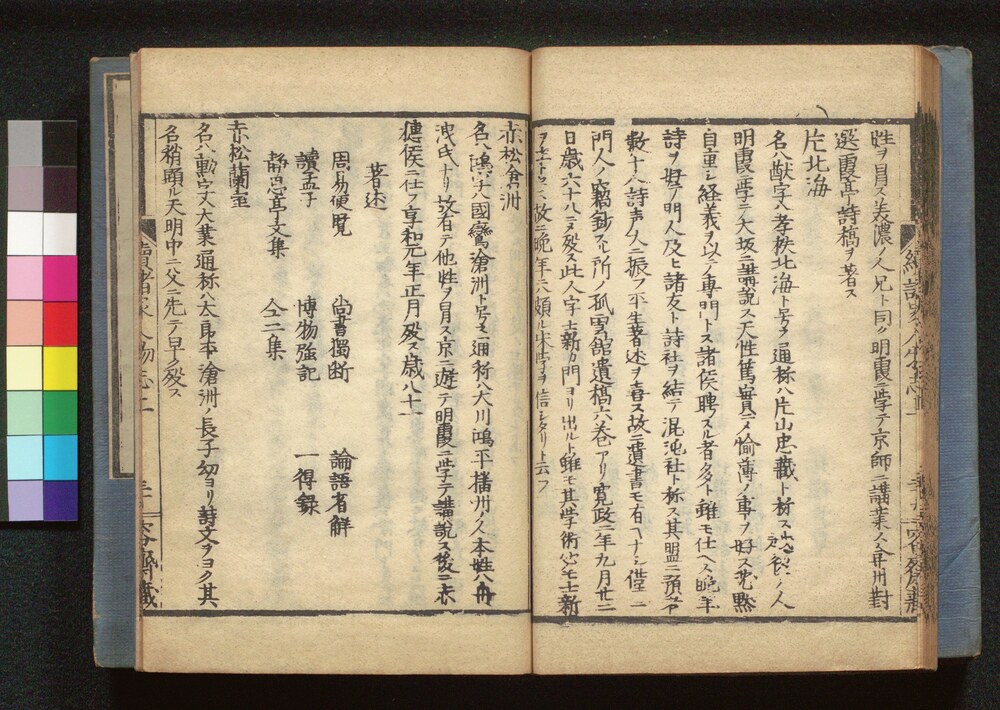 姓ヲ冒ス美濃ノ人兄ト同ク明霞ニ学テ京師ニ講業ス弇州尌
選霞亭詩槁ヲ著ス
片北海
名ハ猷字ハ孝秩北海ト号ス通称ハ片山忠蔵ト称ス越後ノ人
明霞ニ学ニ大坂ニ講説ス天性篤實ニメ愉薄ノ事ヲ好ス恭黙
自重シ経義ヲ以テ專門トス諸侯聘スル者多ト雖モ仕ヘス晩年
詩ヲ好ノ門人及ヒ諸友ト詩社ヲ結テ混沌社ト称ス其盟ニ預ル者
數十人詩声人ニ振フ平生著述ヲ喜ス故ニ遺書モ有ヿナシ僅ニ
門人ノ竊鈔スル所ノ孤雲館遺槁六巻アリ寛政二年九月廿二
日歳六十八ニメ殁ス此人宇士新カ門ヨリ出ルト雖モ其学術必モ士新
ヲ主トセス故ニ晩年ハ頗ル宋学ヲ信シタリト云フ
赤松滄洲
名ハ鴻字ハ國鸞滄洲ト号ス通称ハ大川鴻平播州ノ人本姓ハ舟
洩氏ナリ故有テ他姓ヲ冒ス京ニ遊テ明霞ニ学テ講説ス後ニ赤
穗侯ニ仕フ享和元年正月殁ス歳八十一
著述
周易便覧 尚書獨断 論語省解
讀孟子 博物強記 一得録
静思亭文集 仝二集
赤松蘭室
名ハ勲字ハ大業通称ハ太郎平滄洲ノ長子幼ヨリ詩文ヲヨク其
名稍顕ル天明中ニ父ニ先テ早ク殁ス
續諸家人物志二